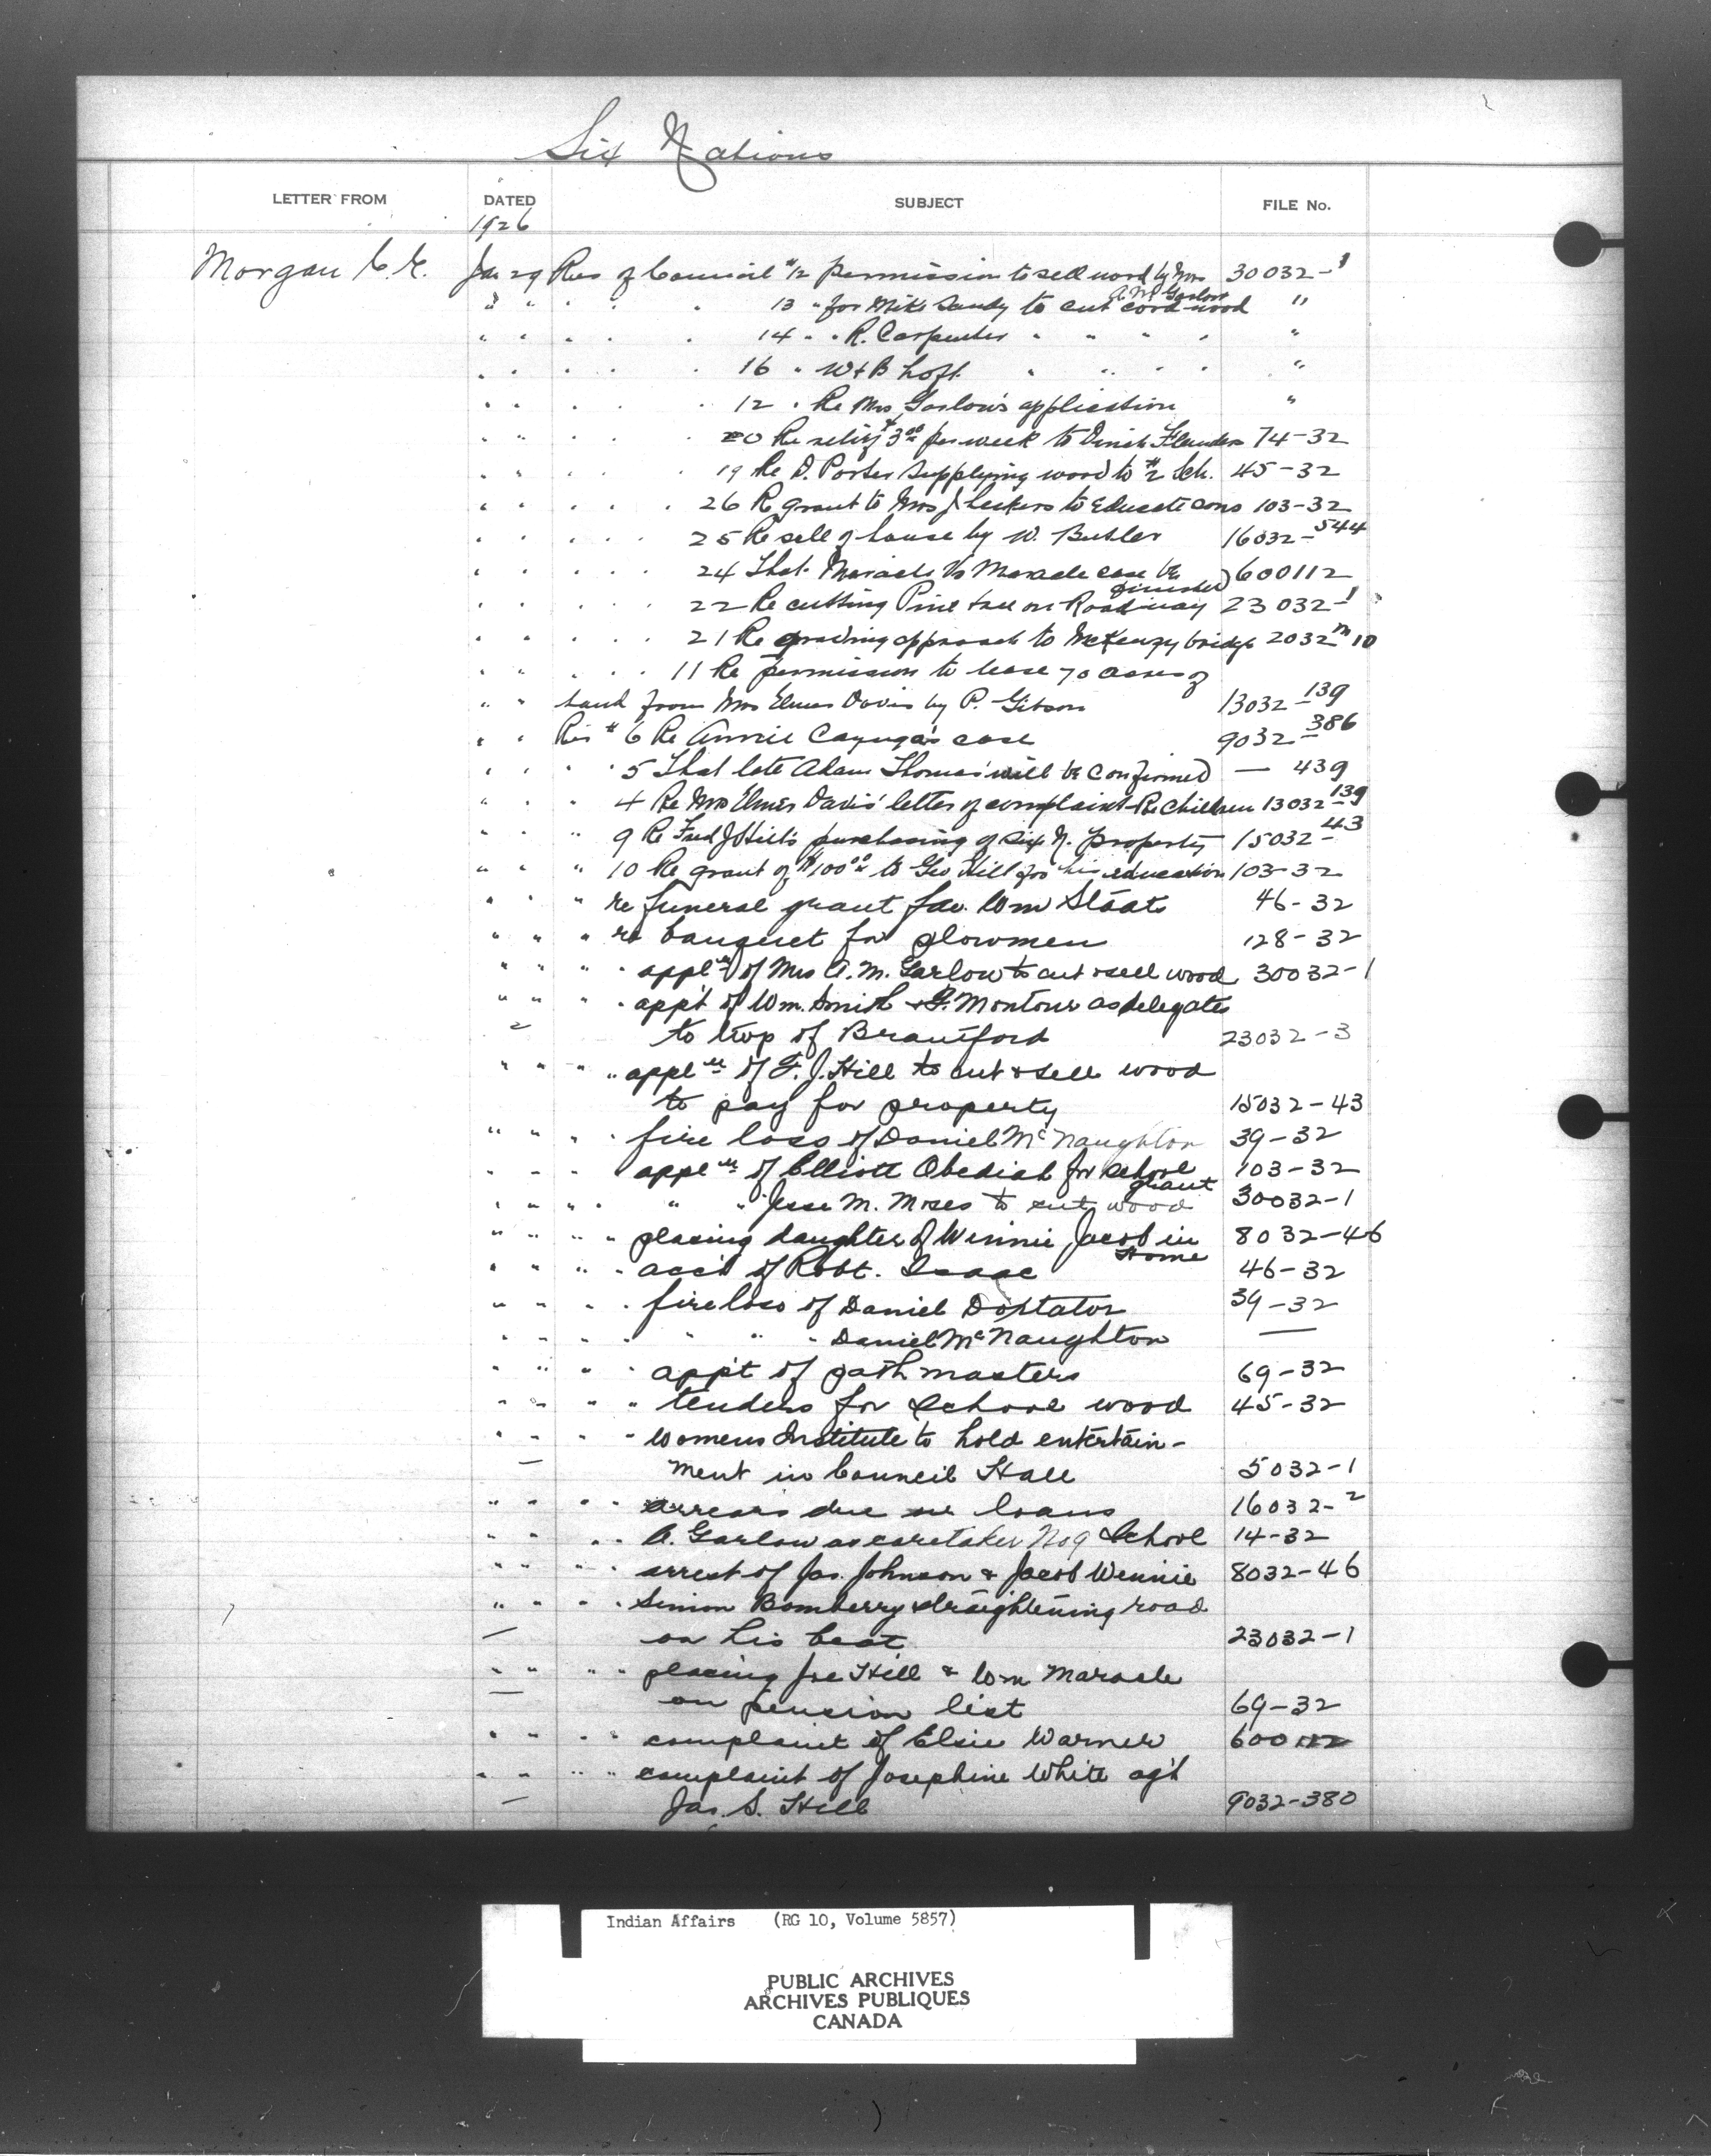 Six Nations
LETTER FROM DATED SUBJECT FILE No.
1926
Morgan C.E. Jan 29 Res of Council #12 permission to sell wood by Mrs 30032-1
A M Garlow
" " " " " 13 " for Mike Sandy to cut cord wood "
" " " " " 14 " " R. Carpenter " " " " "
" " " " " 16 " W & B Loft " " " " "
" " " " " 12 " Re Mrs Garlow's application "
" " " " " 20 Re relief $3.00 per week to Flanders 74-32
" " " " " 19 Re D. Porter supplying wood to #2 Sch. 45-32
" " " " " 26 R grant to Mrs J to Educate sons 103-32
" " " " " 25 Re sell of house by W. Butler 16032-544
" " " " " 24 That Maracle Vs Maracle case be 600112
dismissed
" " " " " 22 Re cutting Pine tree on Roadway 23032-1
" " " " " 21 Re grading approach to McKenzy bridge 2032 m 10
" " " " " 11 Re permission to lease 70 acres of
" " land from Mrs Elmer Davis by P. Gibson 13032-139
" " Res # 6 Re Annie Cayuga's case 9032-386
" " " " 5 That late Adam Thomas' will be confirmed — 439
" " " 4 Re Mrs Elmer Davis' letter of complaint Re Children 13032-139
" " " 9 Re Fred J Hill's purchasing of Six N. property 15032-43
" " " 10 Re grant of $100.00 to Geo Hill for his education 103-32
" " " re funeral grant fav. Wm Staats 46-32
" " " re banquet for plowmen 128-32
" " " " appl'n of Mrs A. M. Garlow to cut & sell wood 30032-1
" " " " app't of Wm. Smith & G. Montour as delegates
to twp of Brantford 23032-3
" " " " appl'n of F. J. Hill to cut & sell wood
to pay for property 15032-43
" " " " fire loss of Daniel McNaughton 39-32
" " " appl'n of Elliott Obediah for school 103-32
grant
" " " " " " Jesse M. Moses to cut wood 30032-1
" " " " " placing daughter of Winnie Jacob in 8032-46
Home
" " " " acc't of Robt. Isaac 46-32
" " " " fire loss of Daniel Doxtator 39-32
" " " " " " " Daniel McNaughton —
" " " " app't of pathmasters 69-32
" " " " tenders for school wood 45-32
" " " " Womens Institute to hold entertain-
— ment in Council Hall 5032-1
" " " " arrears due on loans 16032-2
" " " " A. Garlow as caretaker No 9 School 14-32
" " " " arrest of Jas. Johnson & Jacob Winnie 8032-46
" " " " Simon Bomberry straightening road
— on his beat 23032-1
" " " " placing Joe Hill & Wm Maracle
— on pension list 69-32
" " " " complaint of Elsie Warner 600112
" " " " complaint of Josephine White ag't
— Jas. S. Hill 9032-380
Indian Affairs (RG 10, Volume 5857)
PUBLIC ARCHIVES
ARCHIVES PUBLIQUES
CANADA